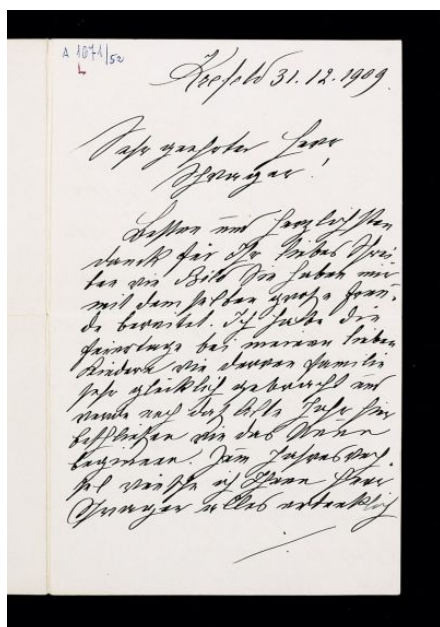 A 1071/52
Krefeld 31.12.1909.
Sehr geehrter Herr
Schwager!
Besten und herzlichsten
danck für Ihr liebes Schrei-
ben wie Bild Sie haben mir
mit dem selben große Freu-
de bereitet. Ich habe die
Feiertage bei meinen lieben
Kindern wie deren Familie
sehr glücklich gebracht und
werde noch das Alte Jahr hier
beschließen wie das Neue
beginnen. Zum Jahreswech-
sel wünsche ich Ihnen Herr
Schwager alles erdenklich